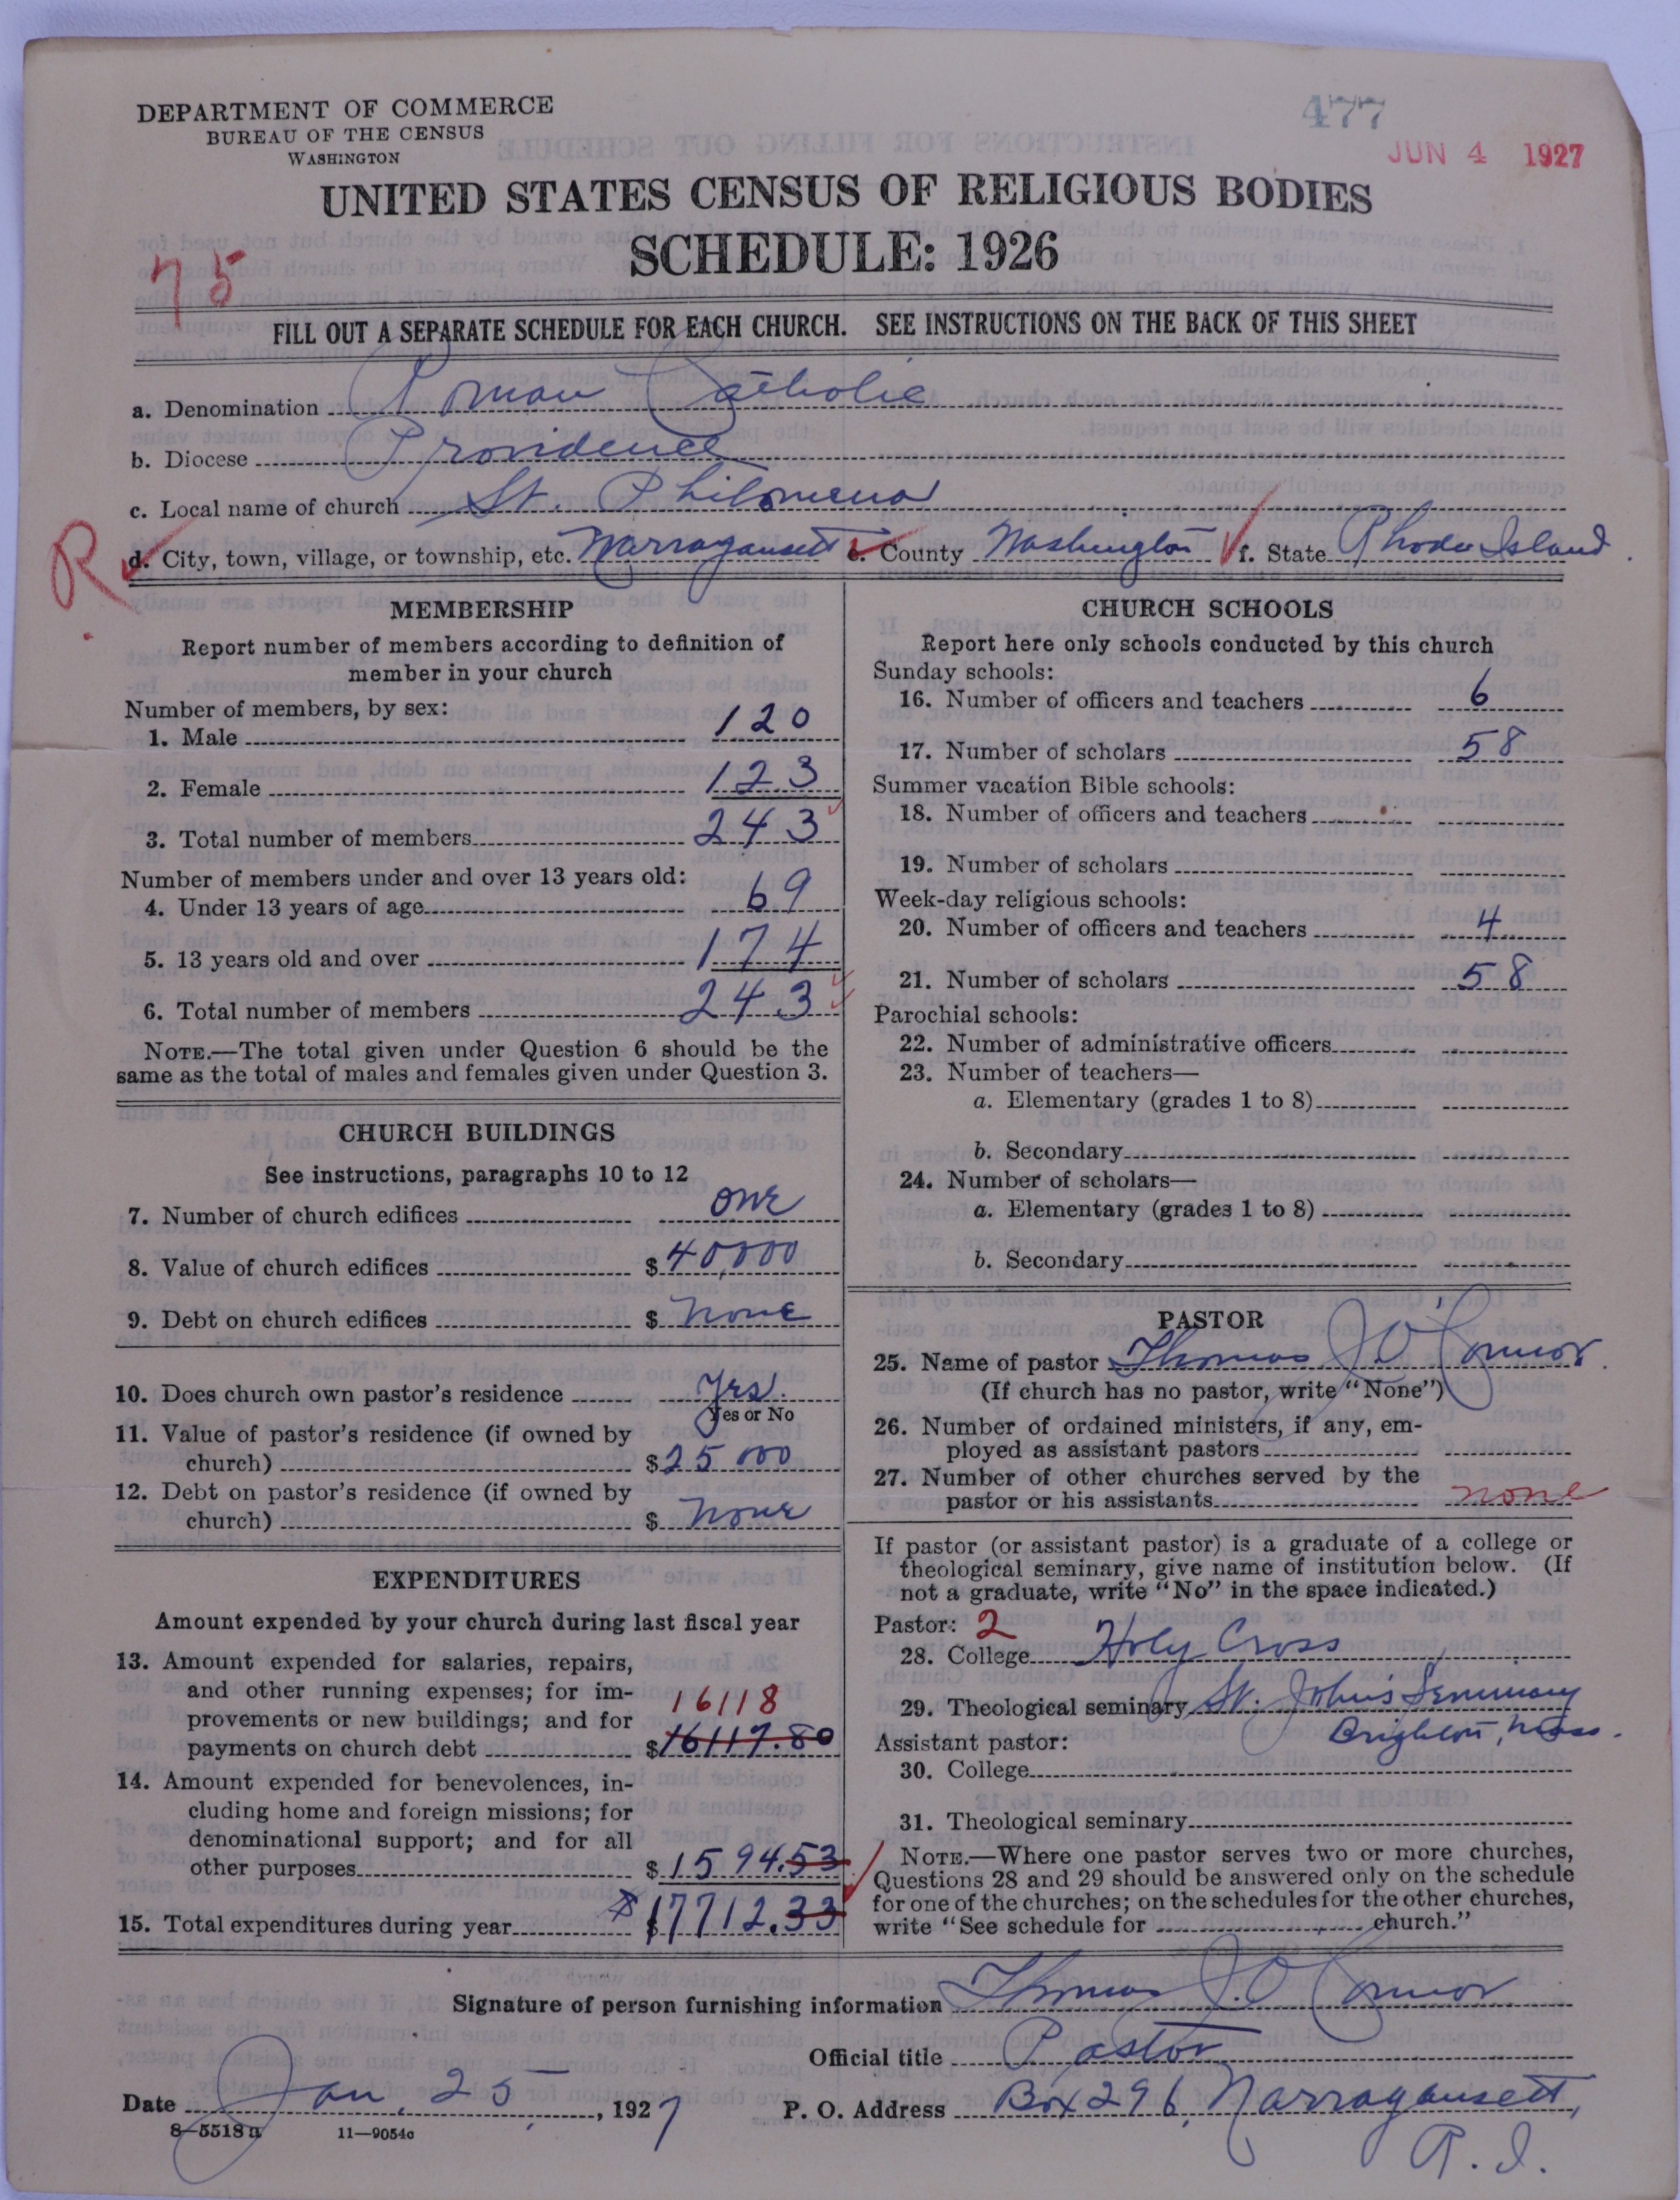 DEPARTMENT OF COMMERCE
BUREAU OF THE CENSUS
WASHINGTON
477
JUN 4 1927
UNITED STATES CENSUS OF RELIGIOUS BODIES
SCHEDULE: 1926
75
FILL OUT A SEPARATE SCHEDULE FOR EACH CHURCH. SEE INSTRUCTIONS ON THE BACK OF THIS SHEET
a. Denomination Roman Catholic
b. Diocese Providence
c. Local name of church St. Philomena
R
d. City, town, village, or township, etc. Narragansett e. County Washington f. State Rhode Island
MEMBERSHIP
Report number of members according to definition of
member in your church
Number of members, by sex:
1. Male 120
2. Female 123
3. Total number of members 243
Number of members under and over 13 years old:
4. Under 13 years of age 69
5. 13 years old and over 174
6. Total number of members 243
NOTE.—The total given under Question 6 should be the
same as the total of males and females given under Question 3.
CHURCH BUILDINGS
See instructions, paragraphs 10 to 12
7. Number of church edifices one
8. Value of church edifices $ 40,000
9. Debt on church edifices $ none
10. Does church own pastor's residence Yes.
Yes or No
11. Value of pastor's residence (if owned by
church) $ 25 000
12. Debt on pastor's residence (if owned by
church) $ none
EXPENDITURES
Amount expended by your church during last fiscal year
13. Amount expended for salaries, repairs,
and other running expenses; for im- 16118
provements or new buildings; and for
payments on church debt $ 16117.80
14. Amount expended for benevolences, in-
cluding home and foreign missions; for
denominational support; and for all
other purposes $ 1594.53
15. Total expenditures during year $ 17712.33
CHURCH SCHOOLS
Report here only schools conducted by this church
Sunday schools:
16. Number of officers and teachers 6
17. Number of scholars 58
Summer vacation Bible schools:
18. Number of officers and teachers
19. Number of scholars
Week-day religious schools:
20. Number of officers and teachers 4
21. Number of scholars 58
Parochial schools:
22. Number of administrative officers
23. Number of teachers—
a. Elementary (grades 1 to 8)
b. Secondary
24. Number of scholars—
a. Elementary (grades 1 to 8)
b. Secondary
PASTOR
25. Name of pastor Thomas J O'Connor
(If church has no pastor, write "None")
26. Number of ordained ministers, if any, em-
ployed as assistant pastors
27. Number of other churches served by the
pastor or his assistants none
If pastor (or assistant pastor) is a graduate of a college or
theological seminary, give name of institution below. (If
not a graduate, write "No" in the space indicated.)
Pastor: 2
28. College Holy Cross
29. Theological seminary St. John's Seminary
Brighton, Mass.
Assistant pastor:
30. College
31. Theological seminary
NOTE.—Where one pastor serves two or more churches,
Questions 28 and 29 should be answered only on the schedule
for one of the churches; on the schedules for the other churches,
write "See schedule for church."
Signature of person furnishing information Thomas J. O'Connor
Official title Pastor
Date Jan. 25, 1927 P. O. Address Box 296, Narragansett,
R. I.
8—5518 a 11—9054c